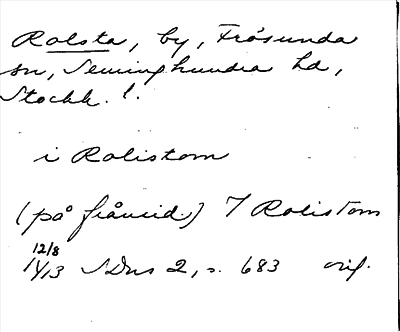 Rolsta, by, Frösunda
sn, Seminghundra hd,
Stockh. l.
i Rolistom
(på frånsid.) I Rolistom
12/8
1413 SDns 2, s. 683 orig.